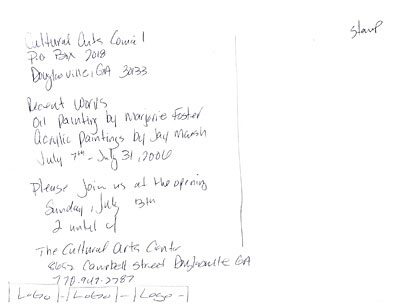 Cultural Arts Council
P.O. Box 2018
Douglasville, GA 30133
Recent Works
Oil Painting by Marjorie Foster
Acrylic Paintings by Jay Marsh
July 7th - July 31, 2006
Please join us at the opening
Sunday, July 13th
2 until 4
The Cultural Arts Center
8652 Campbell Street Douglasville GA
770-949-2787
Logo - Logo - Logo -
Stamp